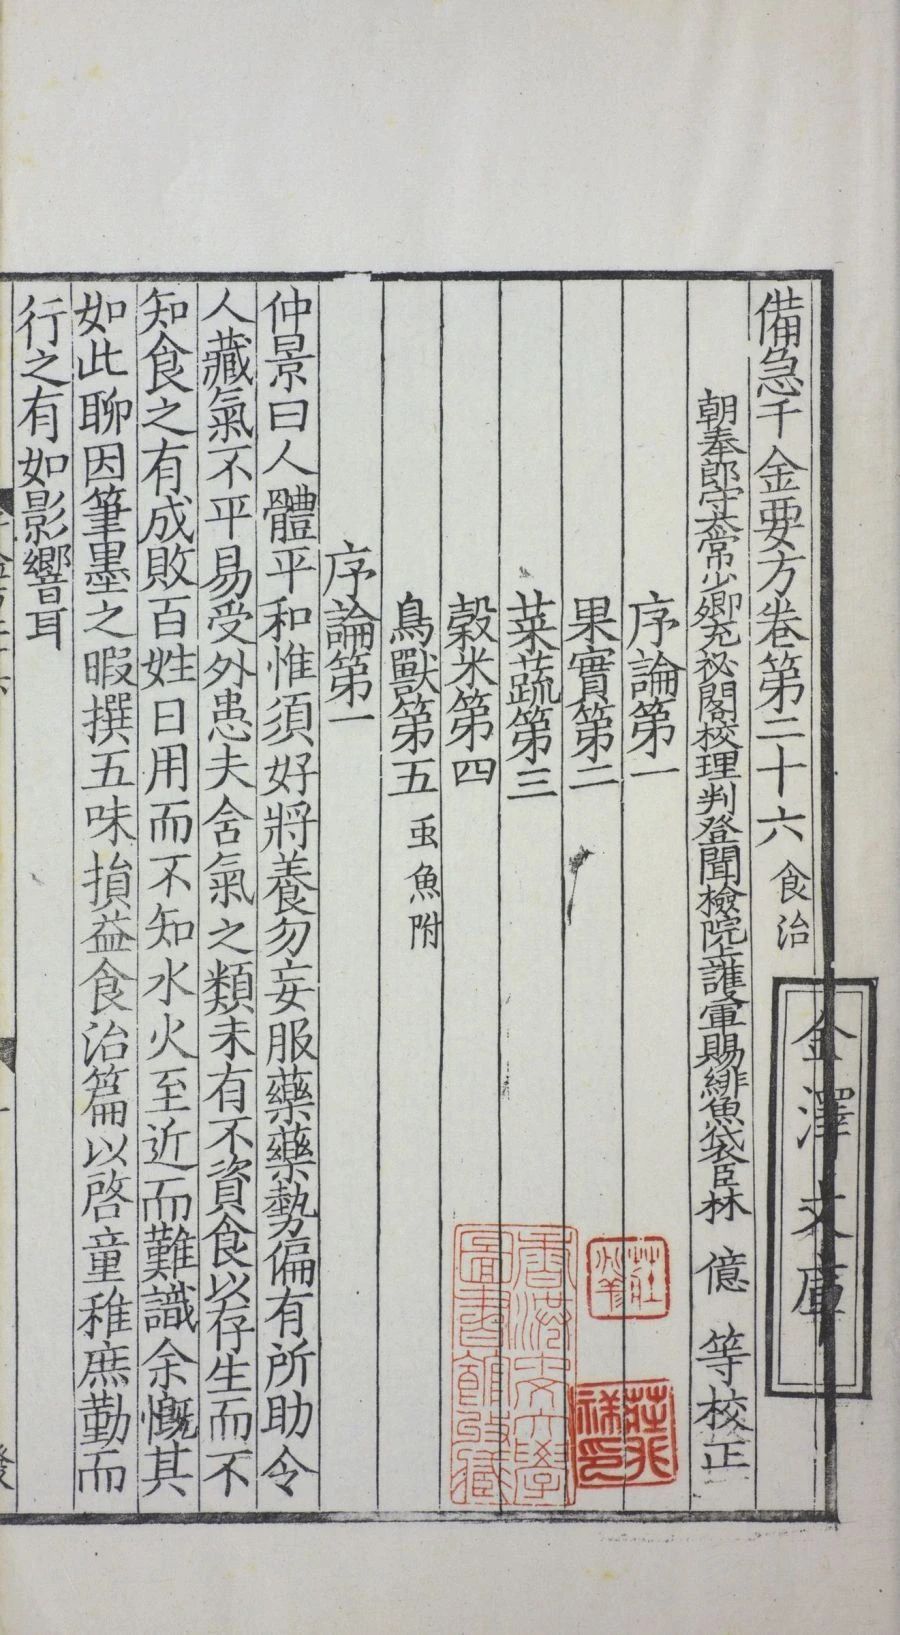 備急千金要方卷第二十六 食治
朝奉郎守太常少卿充祕閣校理判登聞檢院上護軍賜緋魚袋臣林 億 等校正
序論第一
果實第二
菜蔬第三
穀米第四
鳥獸第五 䖝魚附
序論第一
仲景曰人體平和惟須好將養勿妄服藥藥勢偏有所助令
人藏氣不平易受外患夫含氣之類未有不資食以存生而不
知食之有成敗百姓日用而不知水火至近而難識余慨其
如此聊因筆墨之暇撰五味損益食治篇以啓童稚庶勤而
行之有如影響耳
金澤文庫
香港中文大學
圖書館攷藏